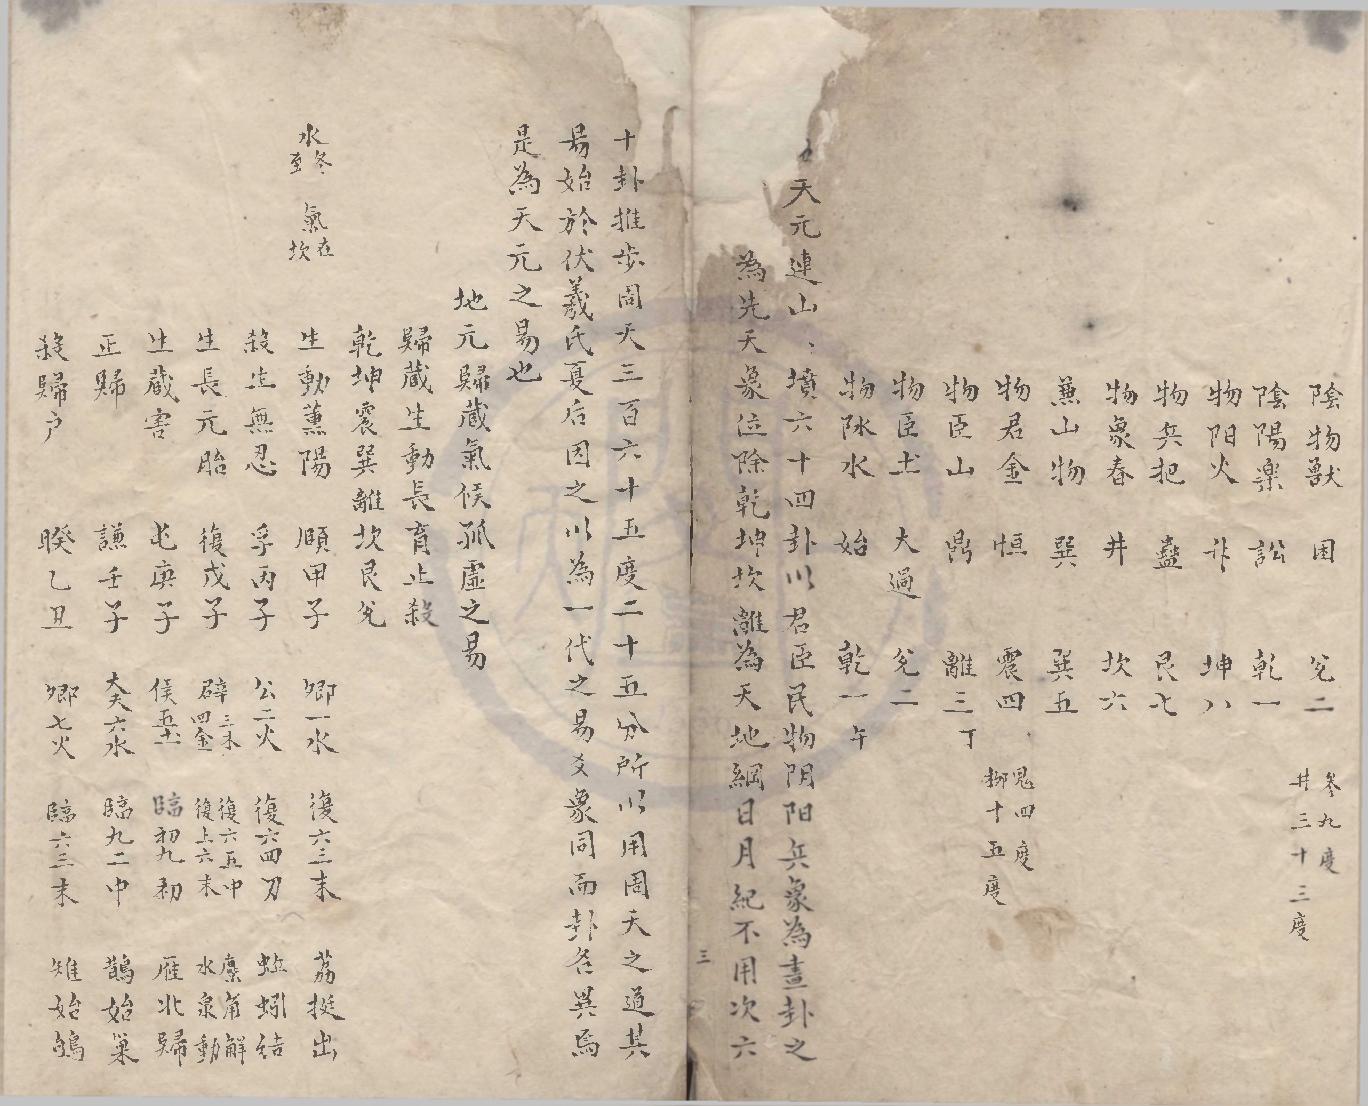 陰物獸 困 兌二 參九度 井三十三度
陰陽樂 訟 乾一
物阳火 升 坤八
物兵把 蠱 艮七
物象春 井 坎六
兼山物 巽 巽五
物君金 恒 震四 鬼四度 柳十五度
物臣山 鼎 離三 丁
物臣土 大過 兌二
物陎水 始 乾一 午
天元連山、墳六十四卦以君臣民物阴阳兵象為畫卦之
為先天象位除乾坤坎離為天地綱日月紀不用次六
三
十卦推步周天三百六十五度二十五分所以用周天之道其
易始於伏羲氏夏后因之以為一代之易爻象同而卦各異焉
是為天元之易也
地元歸藏氣候孤虛之易
歸藏生動長育止殺
乾坤震巽離坎艮兌
水冬至 氣在坎 生動薰陽 頤甲子 卿一水 復六三末 荔挺出
殺生無忍 孚丙子 公二火 復六四刀 蚯蚓结
生長元胎 復戊子 辟三木四金 復六五中復上六末 麋角解水泉動
生藏害 屯庚子 侯五土 臨初九初 雁北歸
正歸 謙壬子 大夫六水 臨九二中 鵲始巢
殺歸户 睽乙丑 卿七火 臨六三末 雉始鴝